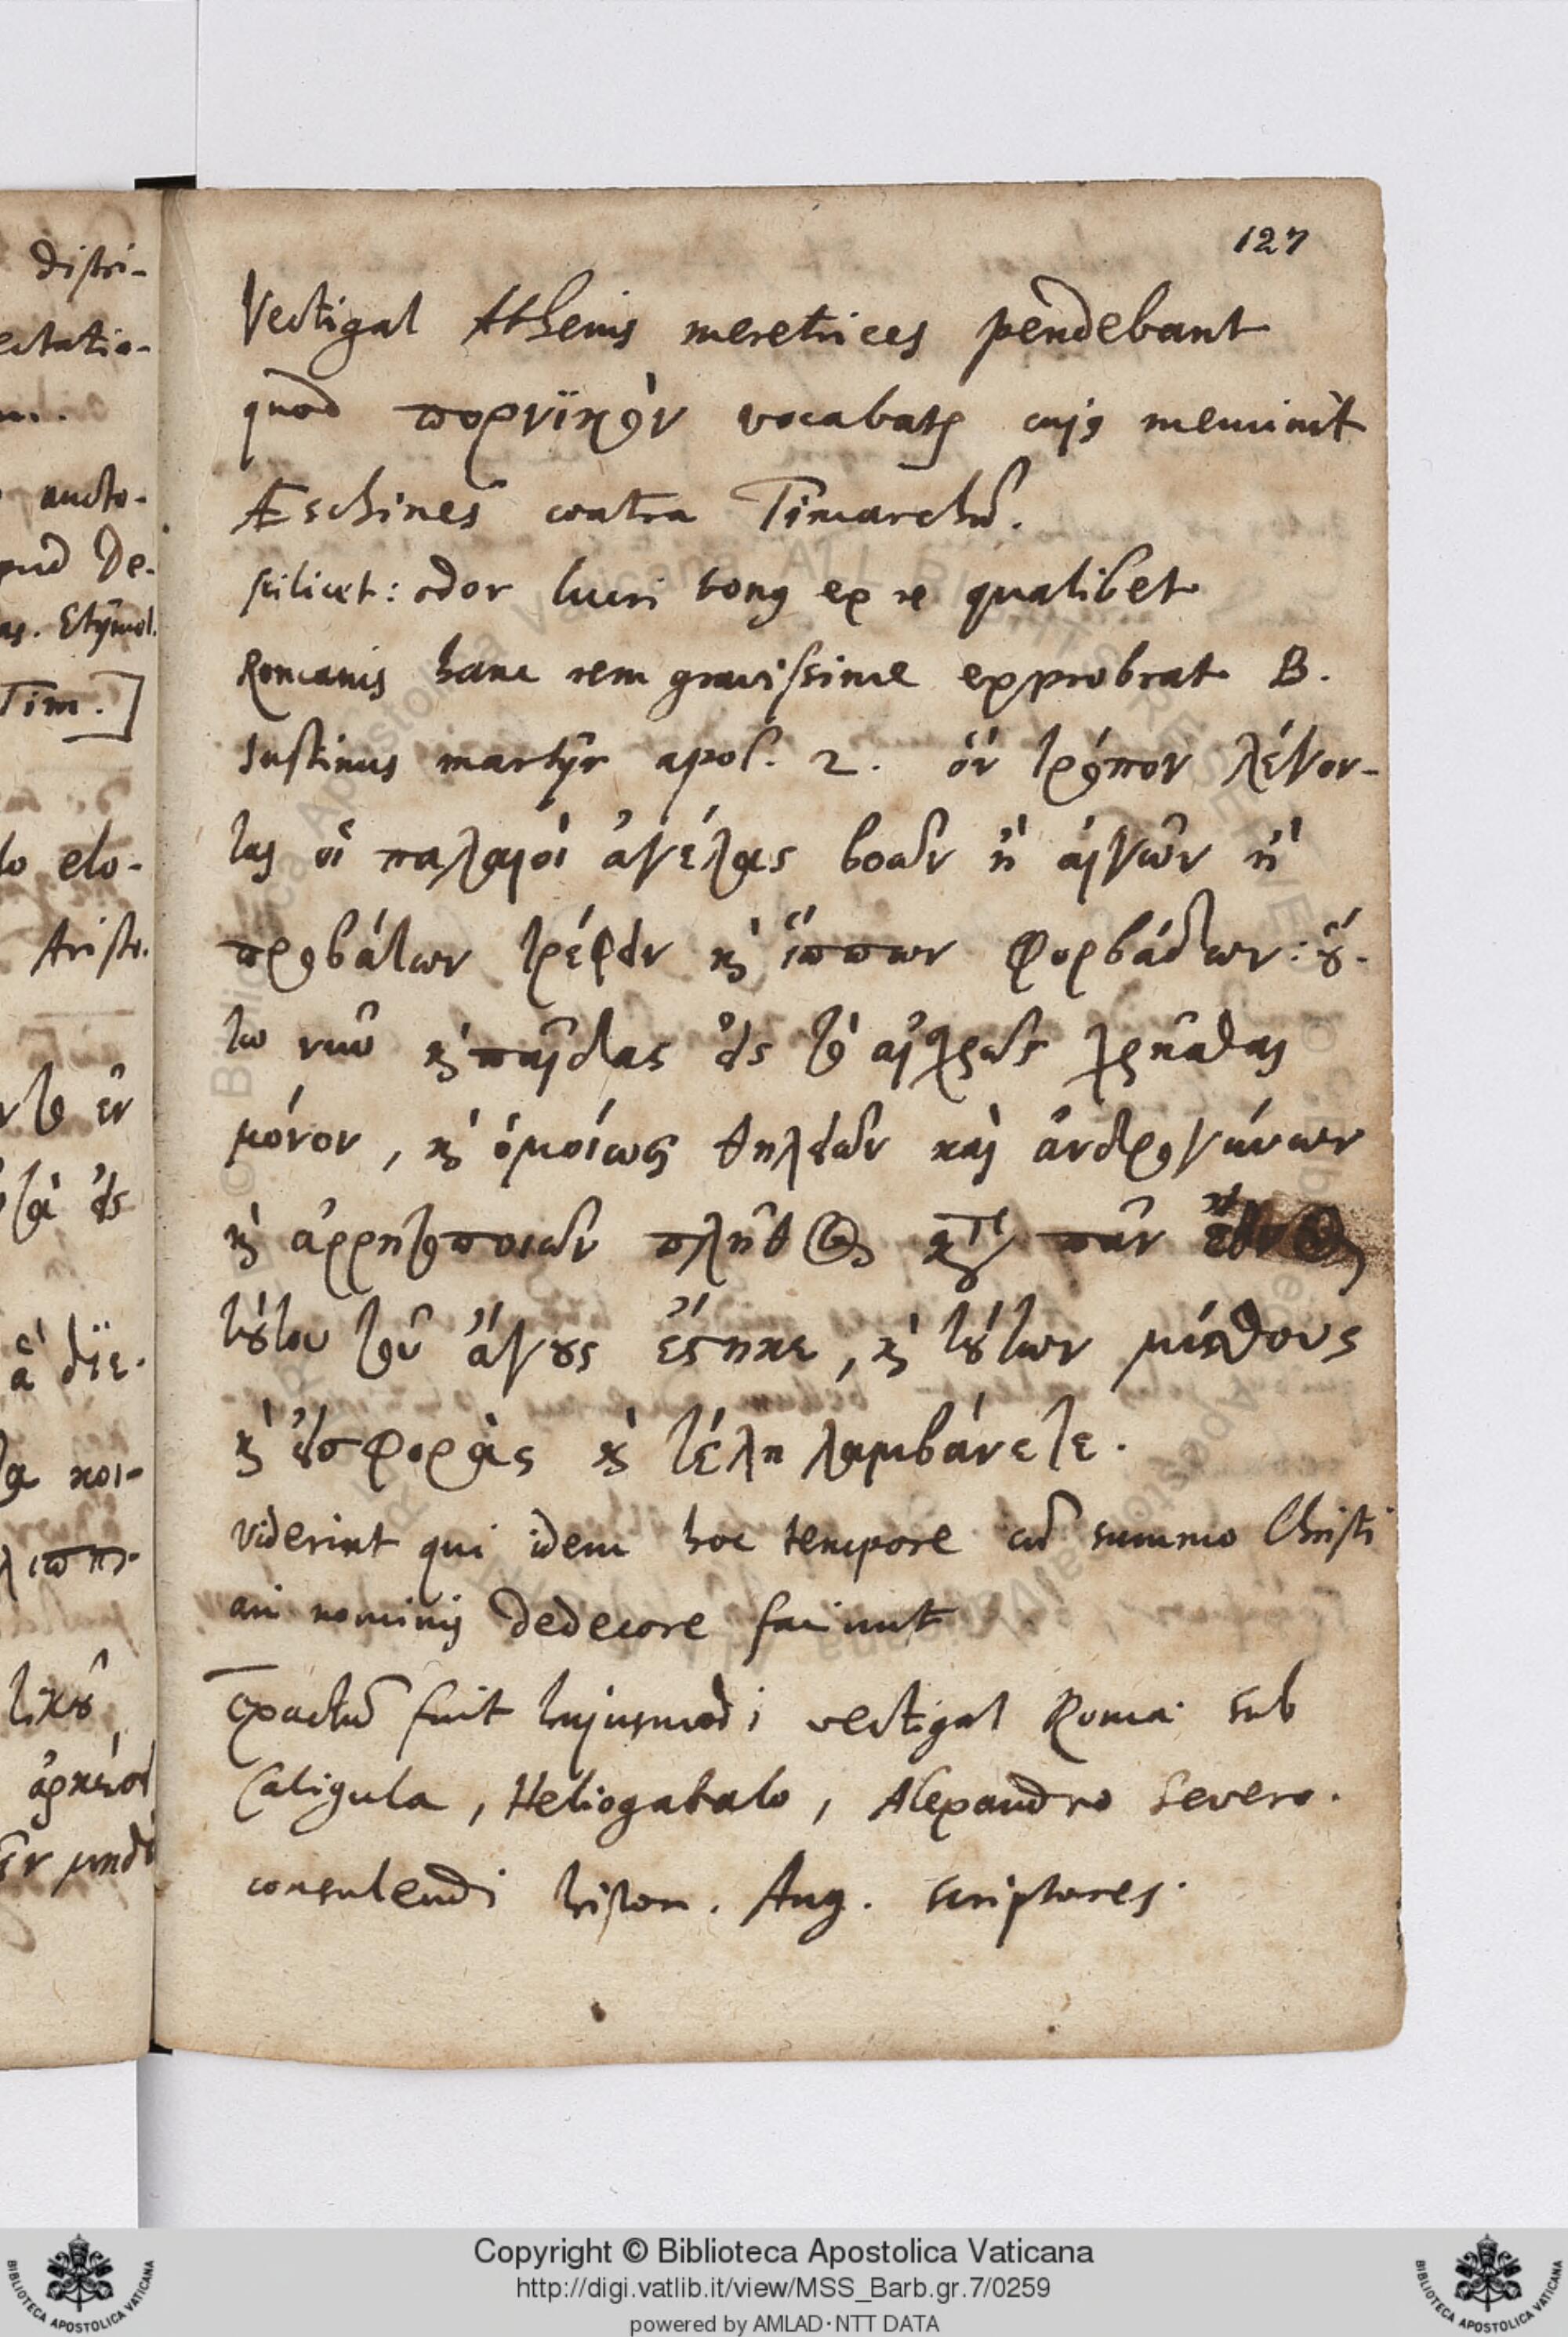 127
Vectigal Athenis meretrices pendebant
quod πορνϊκὸν vocabatur cujus meminit
Æschines contra Timarchū.
scilicet: odor lucri bonus ex re qualibet
Romanis hanc rem gravissime exprobrat B.
Justinus martyr apol. 2. ὅν τρόπον λέγον-
ται οἱ παλαιοὶ ἀγέλας βοῶν ἢ αἰγῶν ἢ
προβάτων τρέφειν κὶ ἵππων φορβάδων: οὕ-
τω νῦν κὶ παῖδας εἰς τὸ αἰχρῶς χρῆσθαι
μόνον, κὶ ὁμοίως θηλειῶν καὶ ἀνδρογύνων
κὶ ἀρρητοποιῶν πλῆθος κτ πᾶν ἔθνος
τούτου τοῦ ἄγους ἕστηκε, κὶ τούτων μίσθους
κὶ εἰσφορὰς κὶ τέλη λαμβάνετε.
viderint qui idem hoc tempore cū summo Christi
ani nominis dedecore faciunt
Exactū fuit hujusmodi vectigal Romæ sub
Caligula, Heliogabalo, Alexandro Severo.
consulendi histor. Aug. scriptores.
distri-
ectatio-
aucto-
pud De-
as. Etymol.
Tim.]
elo-
Aristo.
ἐν
εἰς
ἃ διε-
κοι-
τικοῦ
μηδὲ
Copyright © Biblioteca Apostolica Vaticana
http://digi.vatlib.it/view/MSS_Barb.gr.7/0259
powered by AMLAD·NTT DATA